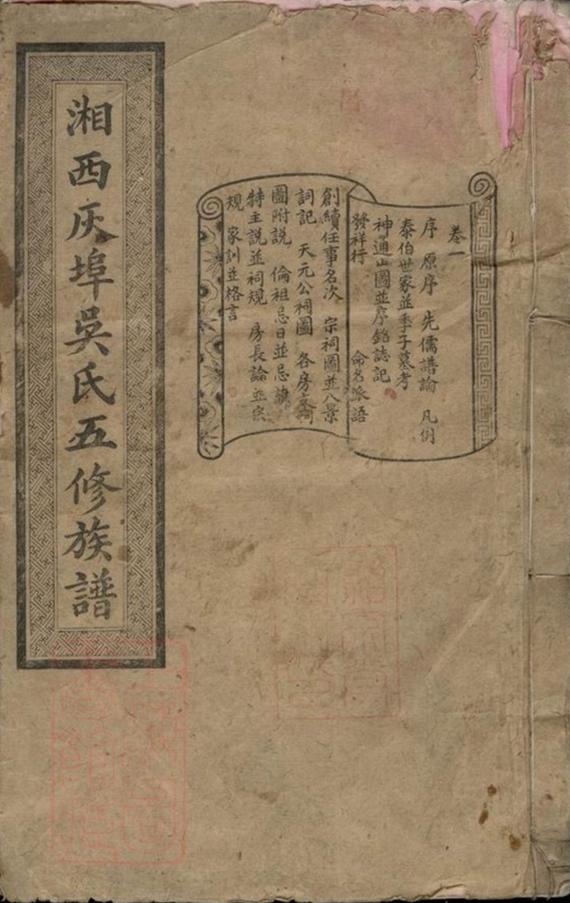 卷一
序　原序　先儒譜論　凡例
泰伯世家並季子墓考
神通山圖並序銘誌記
發祥行　命名派語
創續任事名次　宗祠圖並八景
詞記　天元公祠圖　各房支祠
圖附説　倫祖忌日並忌旗
特主説並祠規　房長論並宗
規　家訓並格言
湘西灰埠吳氏五修族譜